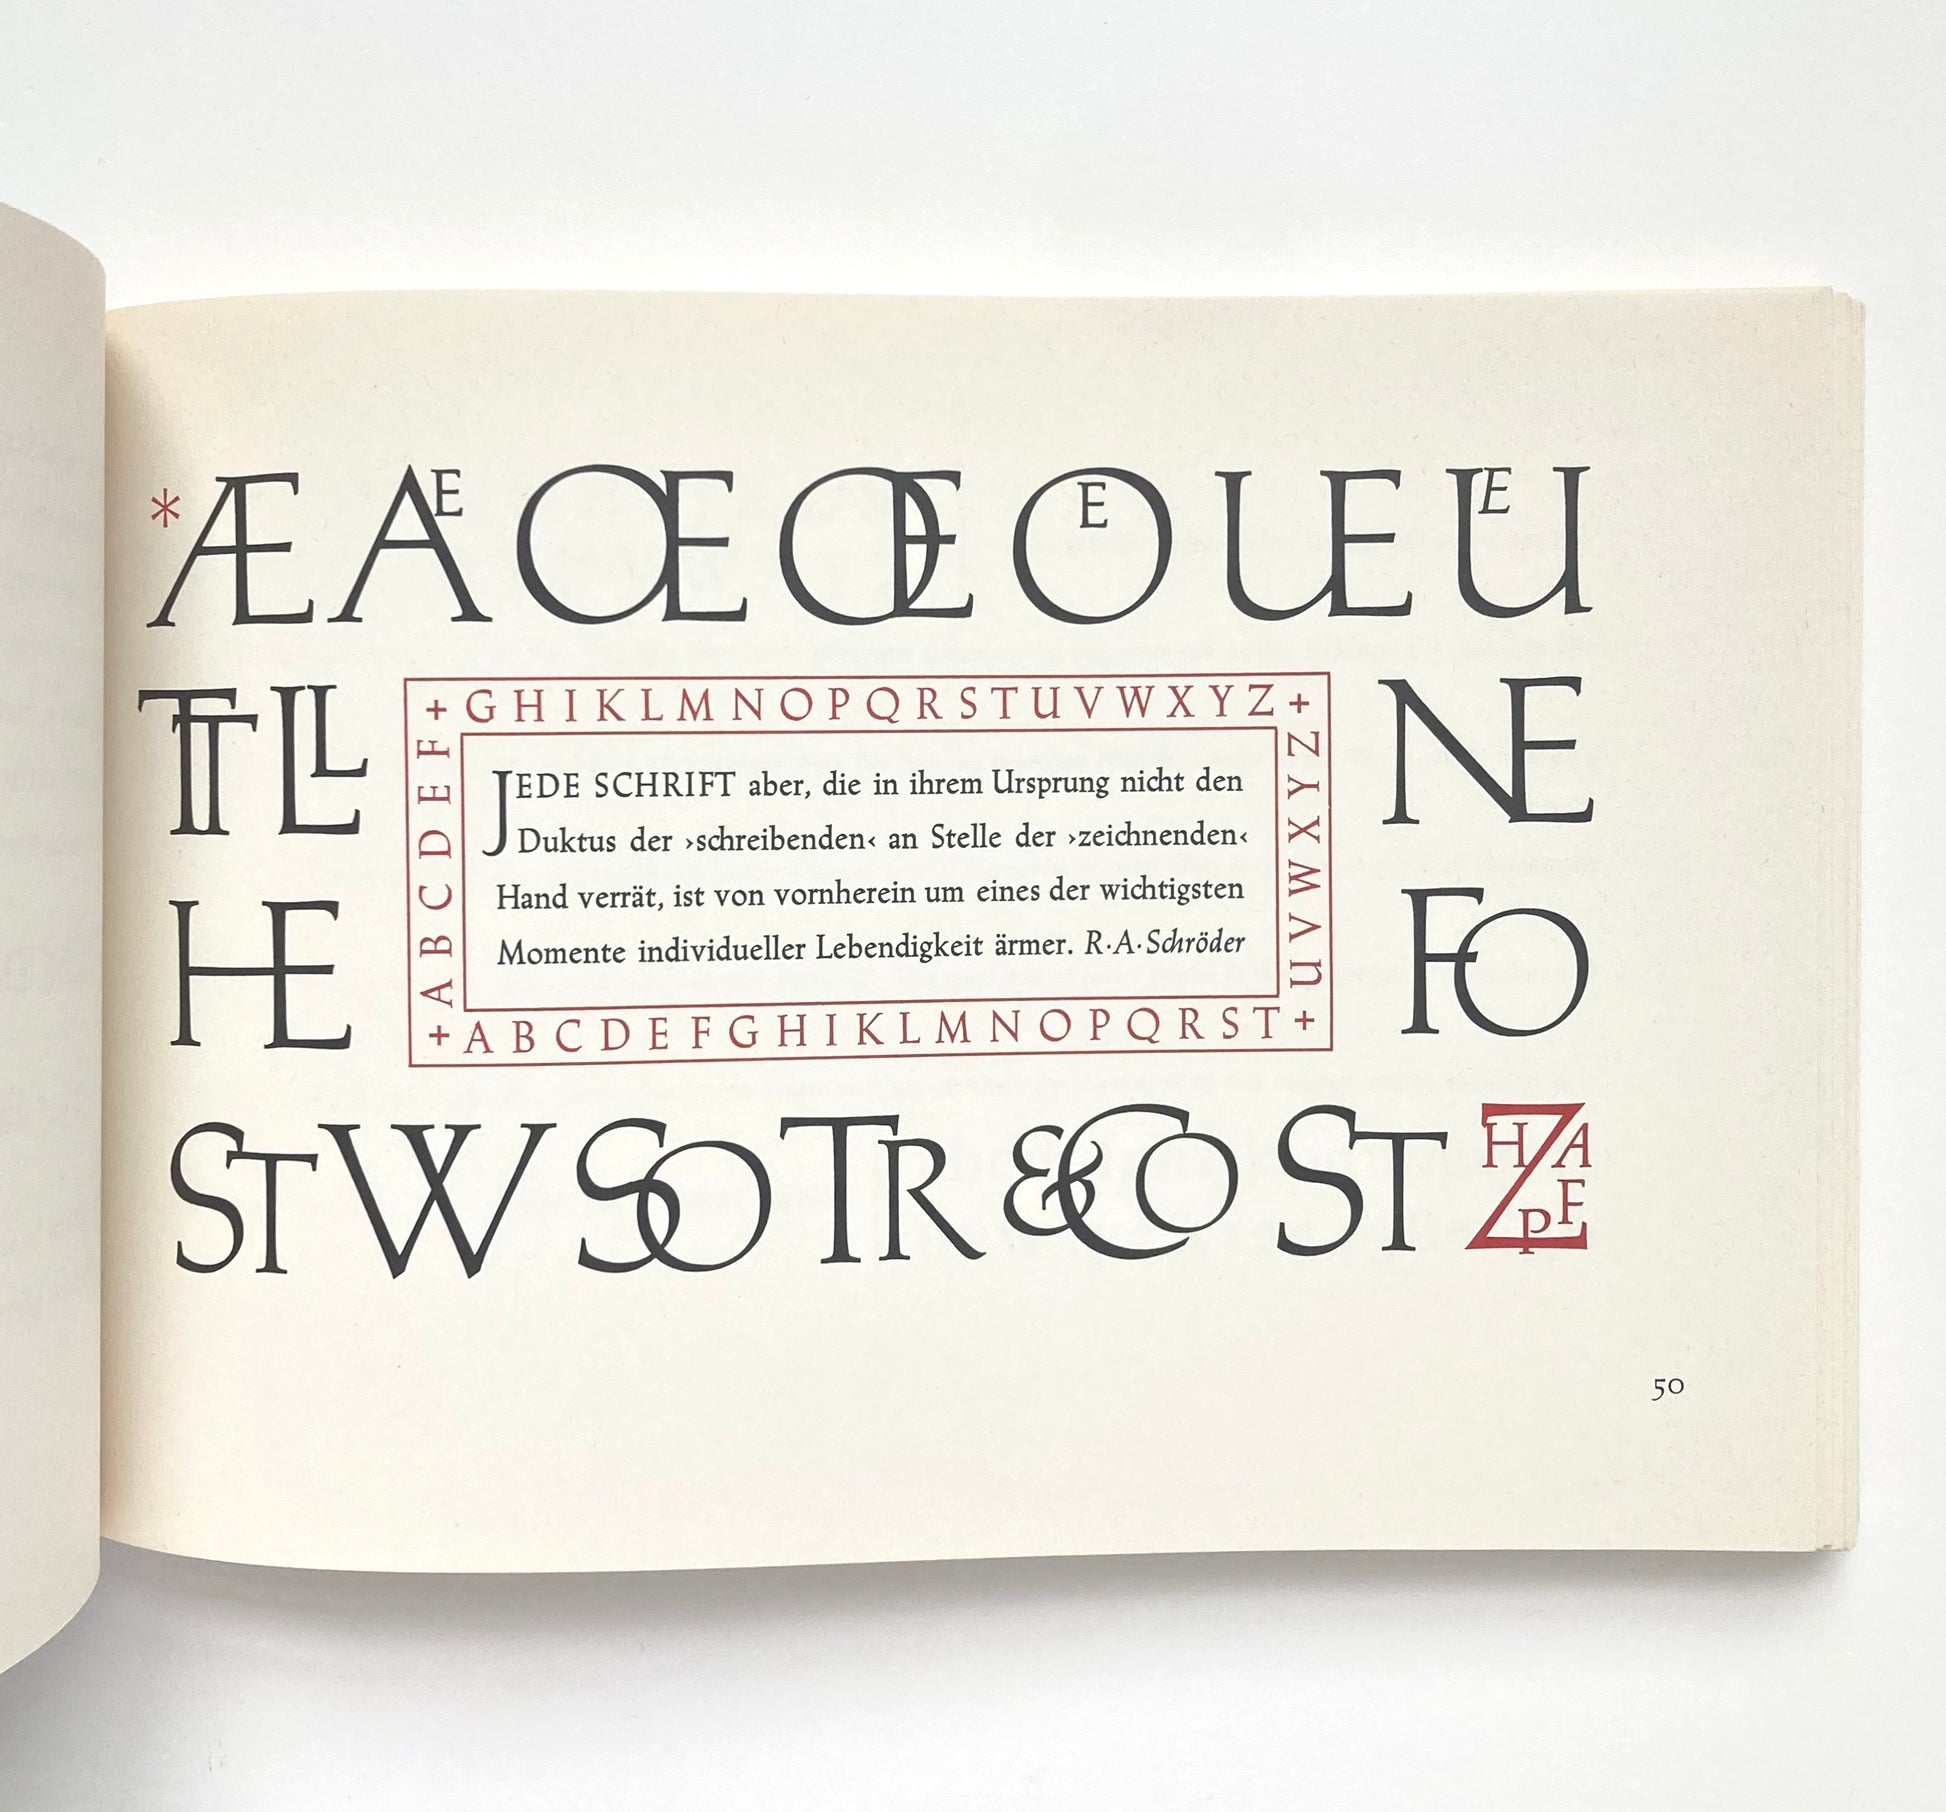 * Æ AE Œ Œ OE UE UE
TT LL
+ G H I K L M N O P Q R S T U V W X Y Z +
NE
A B C D E F
JEDE SCHRIFT aber, die in ihrem Ursprung nicht den
Duktus der ›schreibenden‹ an Stelle der ›zeichnenden‹
Hand verrät, ist von vornherein um eines der wichtigsten
Momente individueller Lebendigkeit ärmer. R·A·Schröder
U V W X Y Z
HE
FO
+ A B C D E F G H I K L M N O P Q R S T +
ST W SO TR & CO ST HZAPF
50